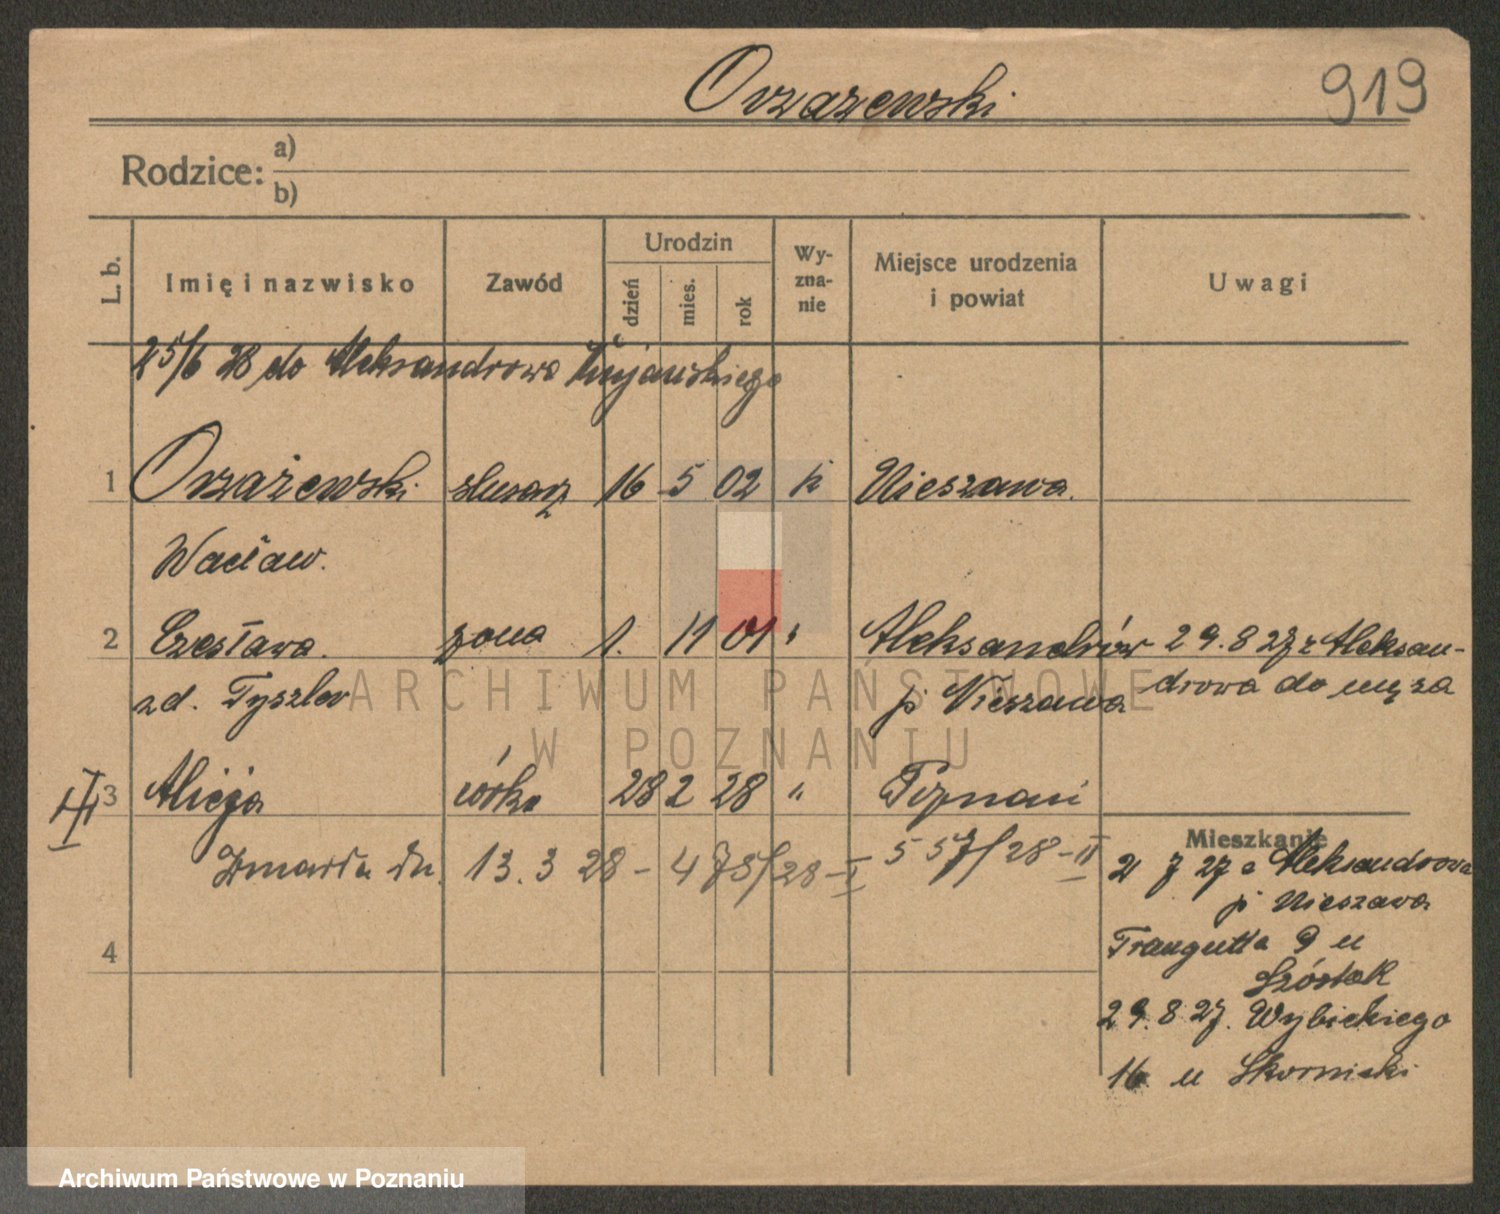 Orzażewski 919
Rodzice: a)
b)
L. b. Imię i nazwisko Zawód Urodzin dzień mies. rok Wy-zna-nie Miejsce urodzenia i powiat Uwagi
25/6 28 do Aleksandrowa Kujawskiego
1 Orzażewski ślusarz 16 5 02 k Nieszawa.
Wacław.
2 Czesława. żona 1. 11 01 " Aleksandrów 29.8 27 z Aleksan-
zd. Tyszler p Nieszawa drowa do męża
3 Alicja córka 28 2 28 " Poznań
Mieszkanie
Zmarła dn. 13.3 28 - 478/28-I 557/28-II 2 7 27 z Aleksandrowa
p Nieszawa
4 Traugutta 9 u
Szóstak
29.8 27. Wybickiego
16 u Skorniski
ARCHIWUM PAŃSTWOWE
W POZNANIU
Archiwum Państwowe w Poznaniu